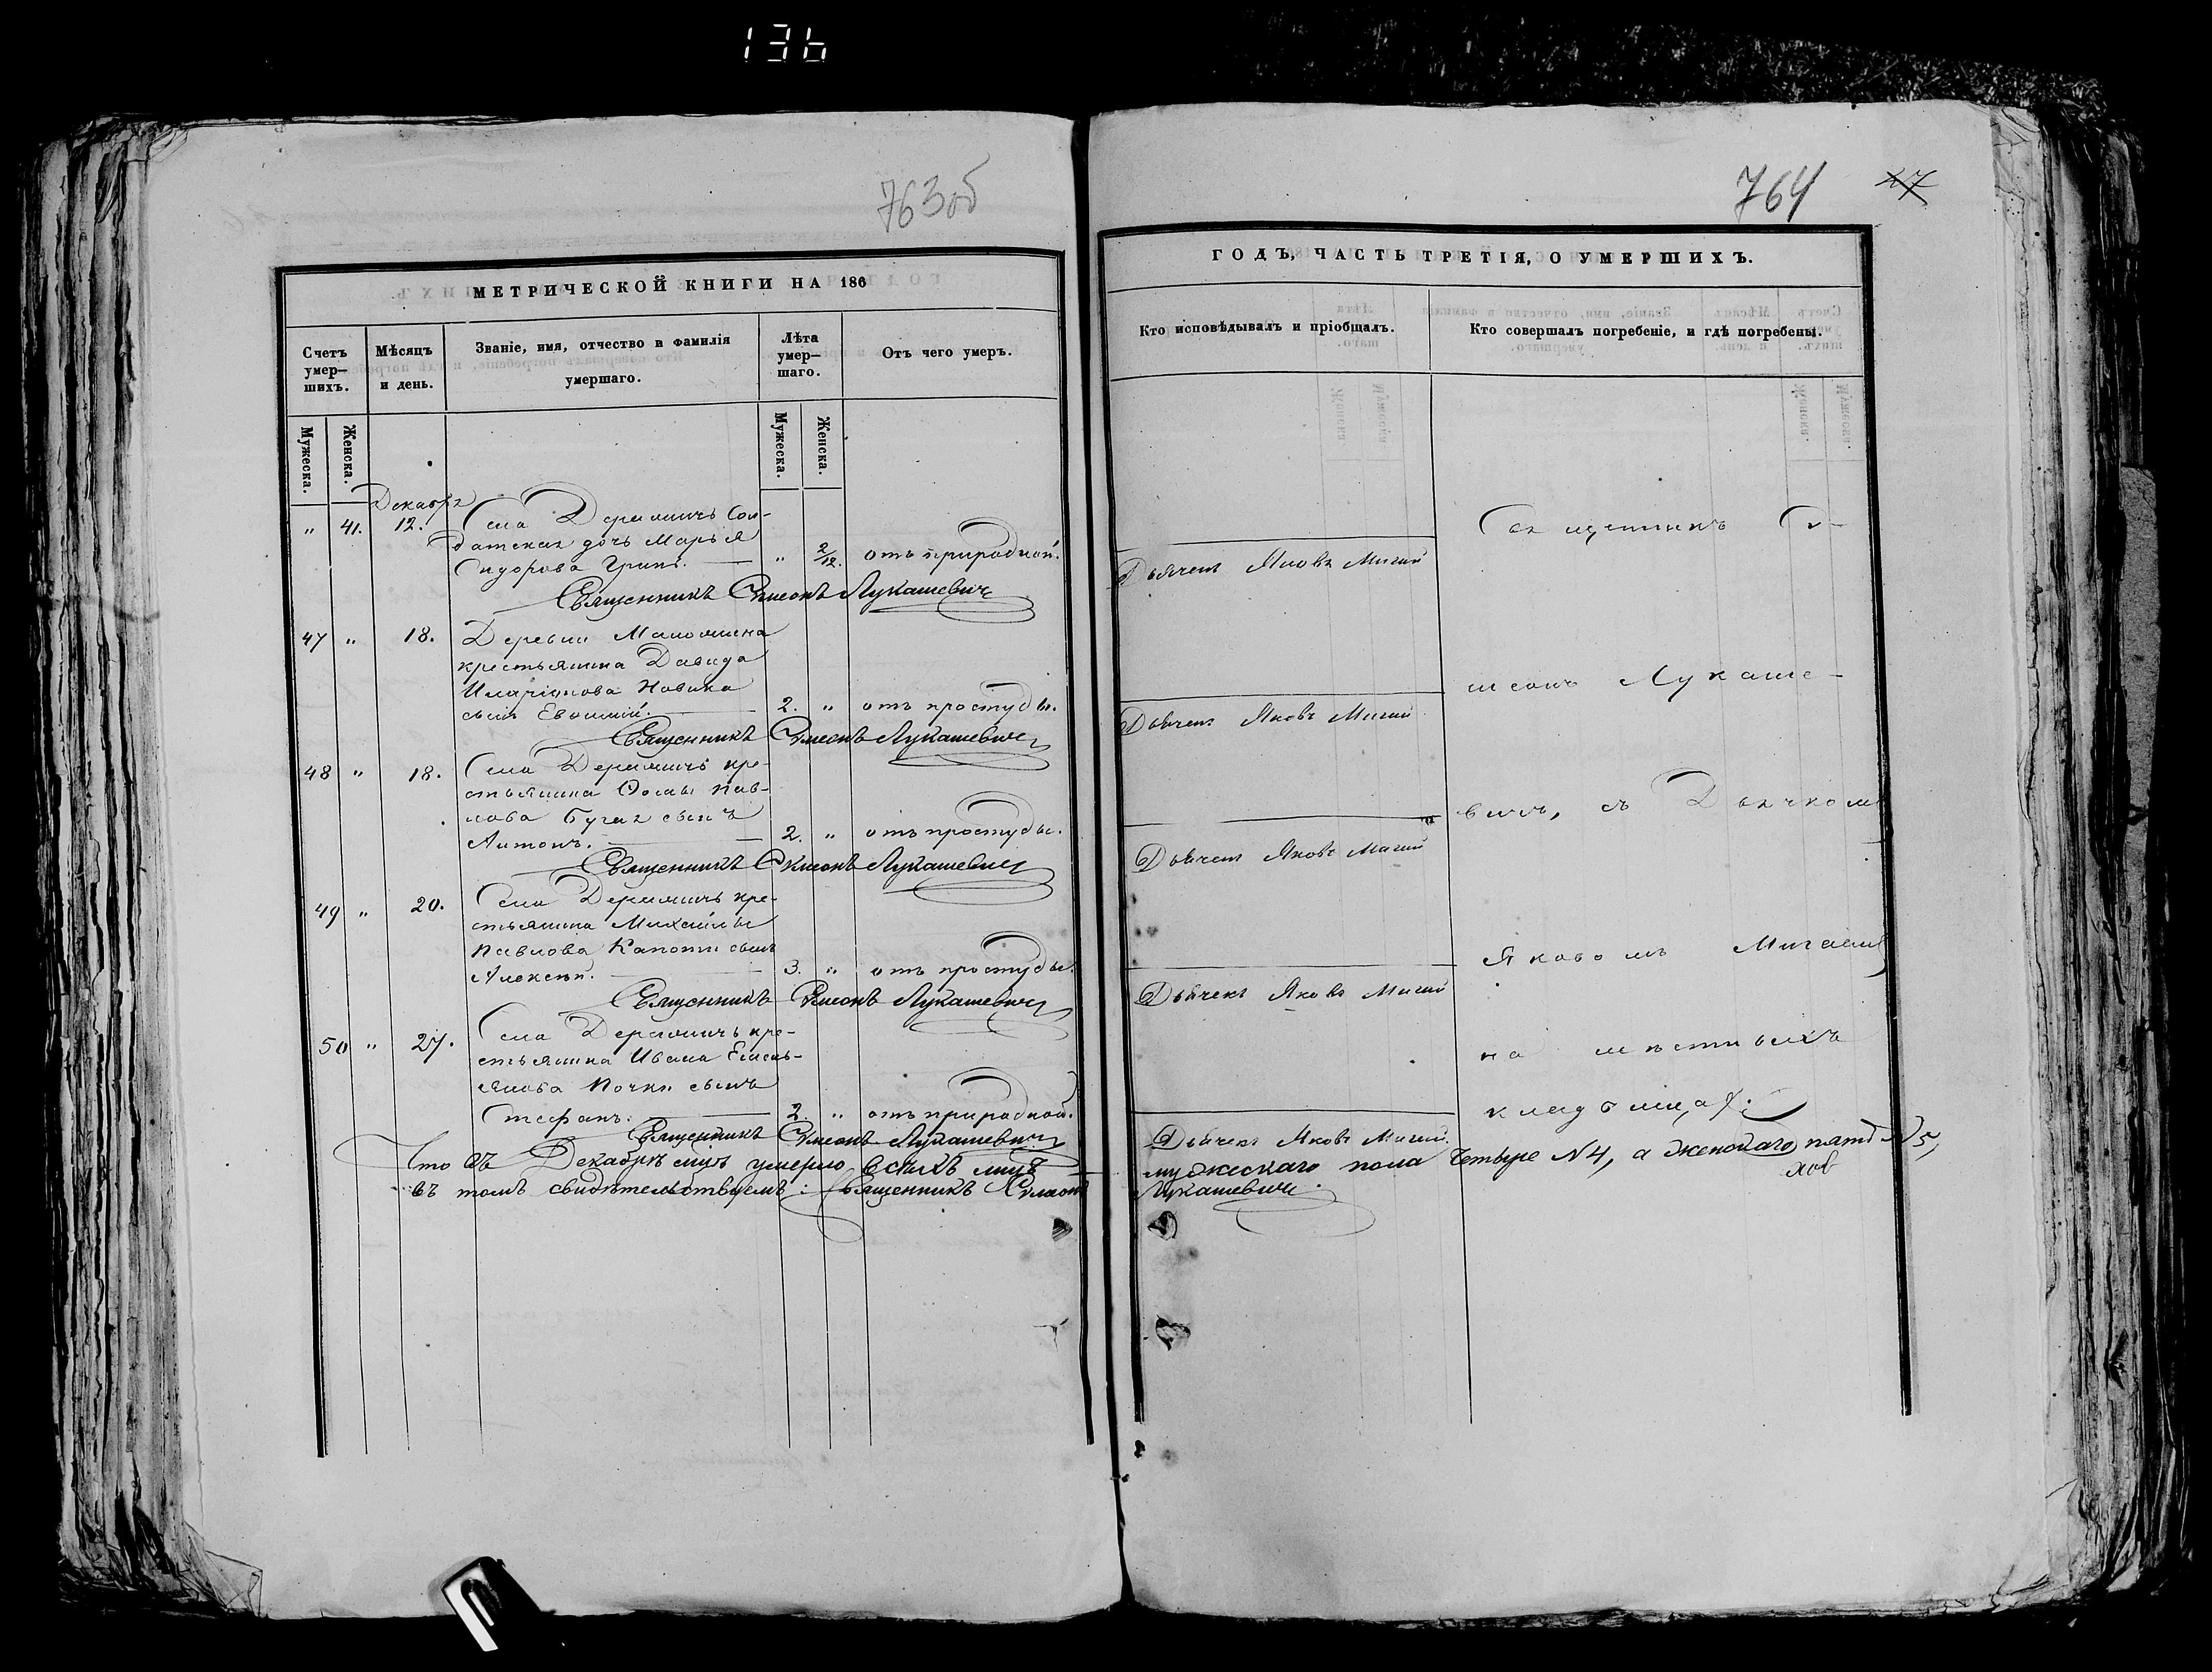 136
763об
МЕТРИЧЕСКОЙ КНИГИ НА 186
Счетъ умер–шихъ.
Мѣсяцъ и день.
Званіе, имя, отчество и фамилія умершаго.
Лѣта умер–шаго.
Отъ чего умеръ.
Мужеска.
Женска.
Мужеска.
Женска.
Декабря
" 41. 12. Села Деражичъ Сол-
датская дочь Марья
Сидорова " 2/12. отъ природной.
Священникъ Симеонъ Лукашевичъ
47 " 18. Деревни
крестьянина Давида
Новика
сынъ Евфимій. 2. " отъ простуды.
Священникъ Симеонъ Лукашевичъ
48 " 18. Села кре-
стьянина Ѳомы Пав-
лова Бугая сынъ
Антонъ. 2. " отъ простуды.
Священникъ Симеонъ Лукашевичъ
49 " 20. Села кре-
стьянина Михаила
Павлова сынъ
Алексѣй. 3. " отъ простуды.
Священникъ Симеонъ Лукашевичъ
50 " 27. Села кре-
стьянина Ивана Емель-
янова сынъ
Стефанъ. 2. " отъ природной.
Священникъ Симеонъ Лукашевичъ
Что въ Декабрѣ умерло всѣхъ
въ томъ свидѣтельствуемъ: Священникъ Симеонъ
764 47
ГОДЪ, ЧАСТЬ ТРЕТІЯ, О УМЕРШИХЪ.
Кто исповѣдывалъ и пріобщалъ.
Кто совершалъ погребеніе, и гдѣ погребены.
Священникъ Си-
Дьячекъ Яковъ Мигай
меонъ Лукаше-
Дьячекъ Яковъ Мигай
вичъ, съ Дьячкомъ
Дьячекъ Яковъ Мигай
Яковомъ Мигаемъ
Дьячекъ Яковъ Мигай
на мѣстныхъ
кладбищахъ
Дьячекъ Яковъ Мигай.
мужескаго пола четыре N4, а женскаго пять N5,
Лукашевичъ.